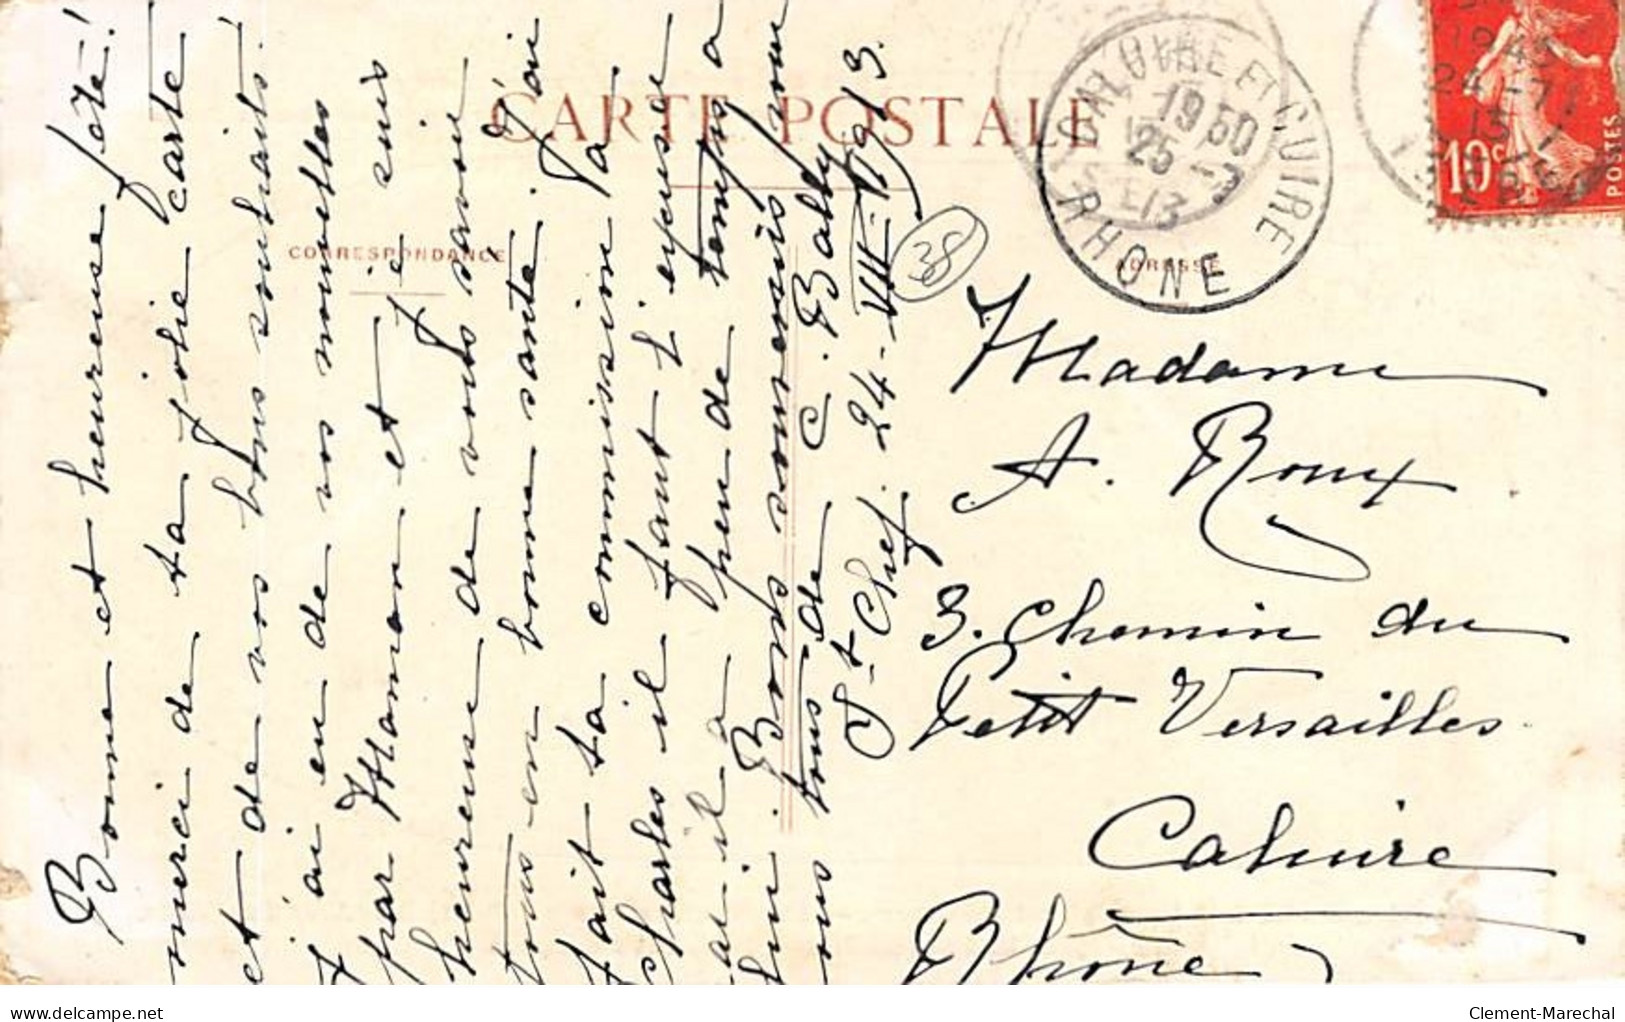 CARTE POSTALE
CORRESPONDANCE
ADRESSE
Bonne et heureuse fête!
merci de ta jolie carte
et de vos bons souhaits!
J'ai eu de vos nouvelles
par Maman et je suis
heureuse de vous savoir
tous en bonne santé. J'ai
fait ta commission à
Charles il faut l'excuser
car il a peu de temps à
lui. Bons souvenirs pour
vous tous de C. Bally
St Chef. 24-VII-1913.
38
Madame
A. Roux
3. Chemin du
Petit Versailles
Caluire
Rhône
CALUIRE ET CUIRE
1950
25-7
13
RHONE
24-7
13
10c
POSTES
delcampe.net
Clement-Marechal